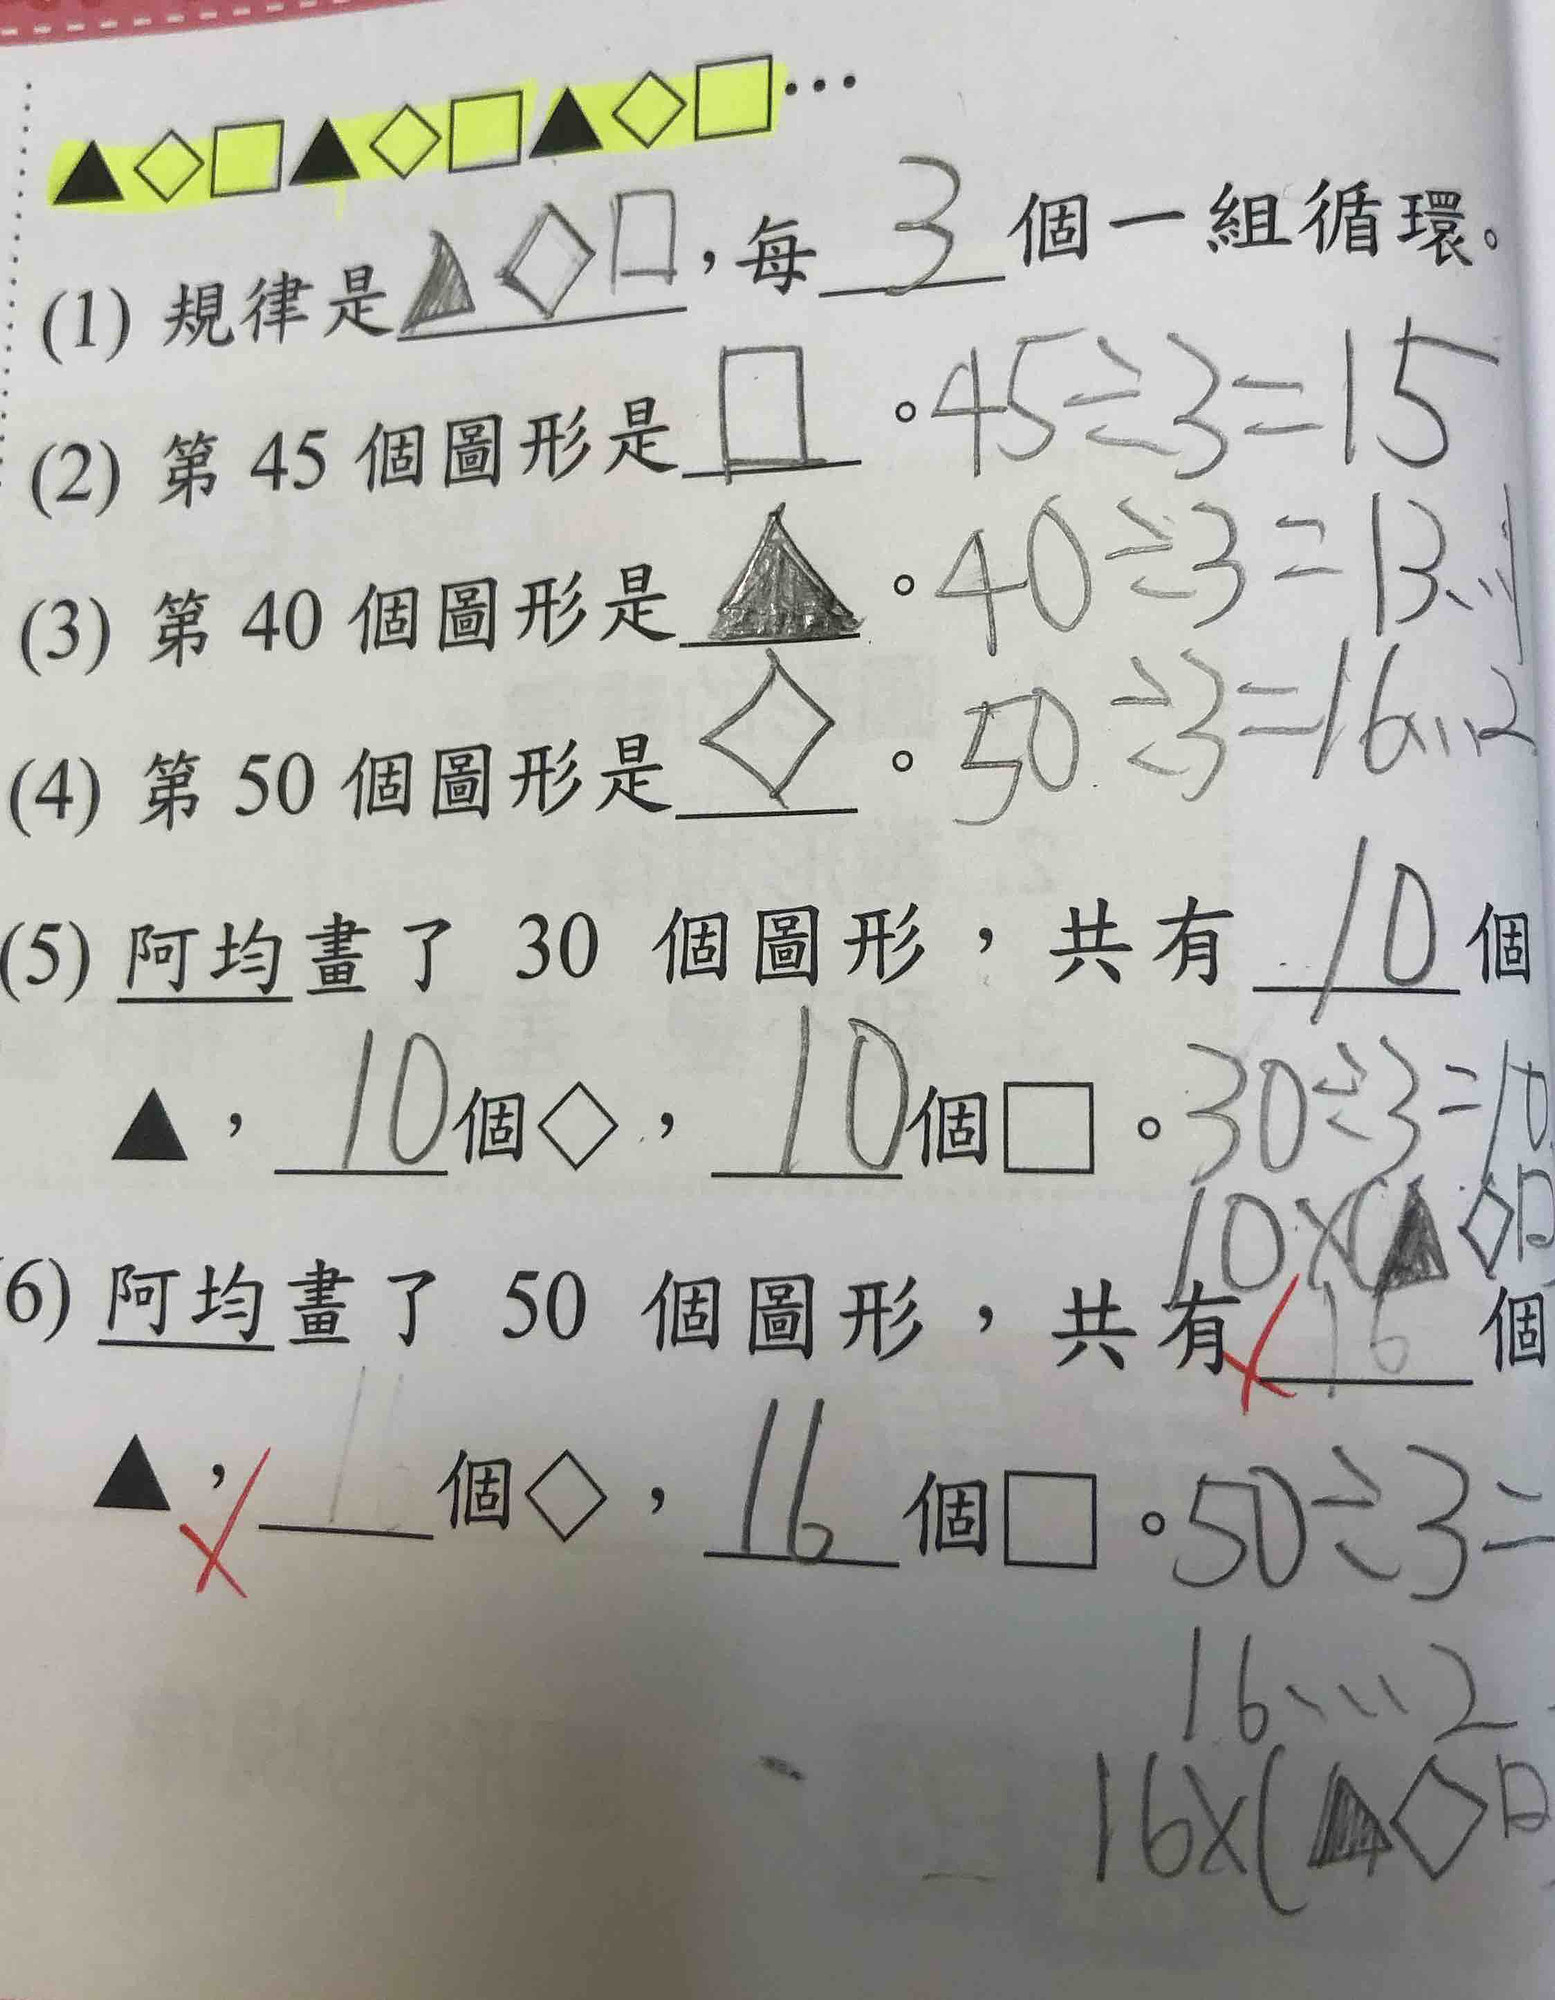 ▲◇□▲◇□▲◇□…
(1) 規律是▲◇□,每 3 個一組循環。
(2) 第 45 個圖形是 □ 。45÷3=15
(3) 第 40 個圖形是 ▲ 。40÷3=13…1
(4) 第 50 個圖形是 ◇ 。50÷3=16…2
(5) 阿均畫了 30 個圖形,共有 10 個
▲, 10 個◇, 10 個□。30÷3=10
10×(▲◇□
6) 阿均畫了 50 個圖形,共有 16 個
▲, 個◇, 16 個□。50÷3=
16…2
16×(▲◇□